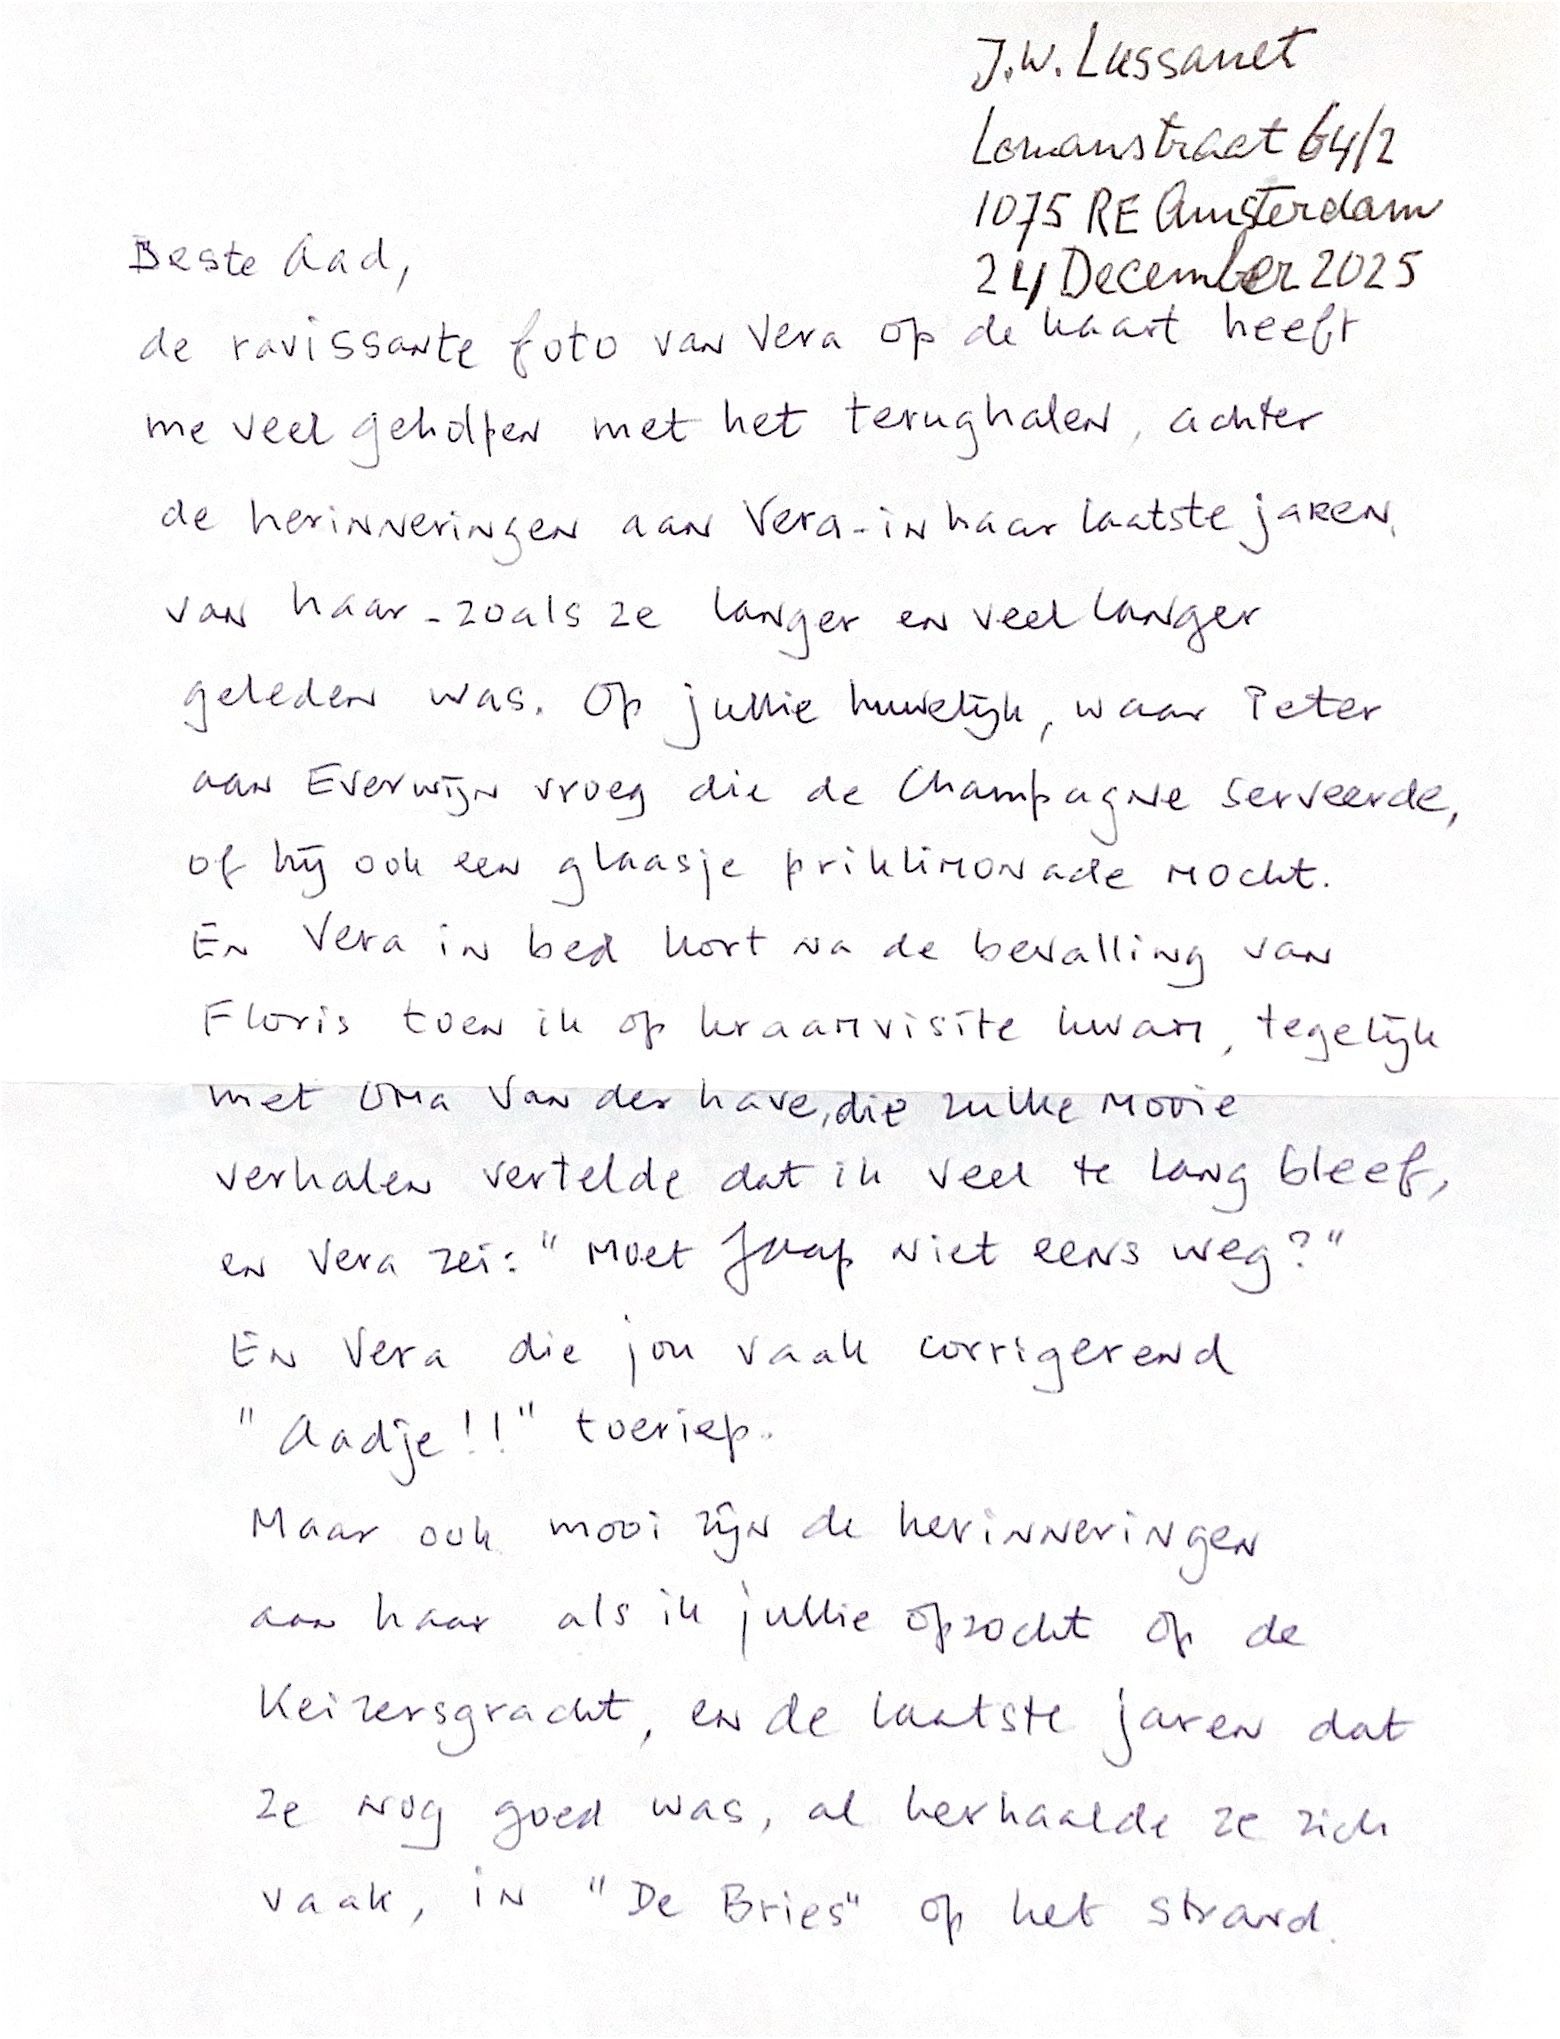 J.W. Lussanet
Lomanstraat 64/2
1075 RE Amsterdam
24 December 2025
Beste Aad,
de ravissante foto van Vera op de kaart heeft
me veel geholpen met het terughalen, achter
de herinneringen aan Vera - in haar laatste jaren,
van haar - zoals ze langer en veel langer
geleden was. Op jullie huwelijk, waar Peter
aan Everwijn vroeg die de Champagne serveerde,
of hij ook een glaasje priklimonade mocht.
En Vera in bed kort na de bevalling van
Floris toen ik op kraamvisite kwam, tegelijk
met Oma Van der have, die zulke mooie
verhalen vertelde dat ik veel te lang bleef,
en Vera zei: "Moet Jaap niet eens weg?"
En Vera die jou vaak corrigerend
"Aadje!!" toeriep.
Maar ook mooi zijn de herinneringen
aan haar als ik jullie opzocht op de
Keizersgracht, en de laatste jaren dat
ze nog goed was, al herhaalde ze zich
vaak, in "De Bries" op het strand.